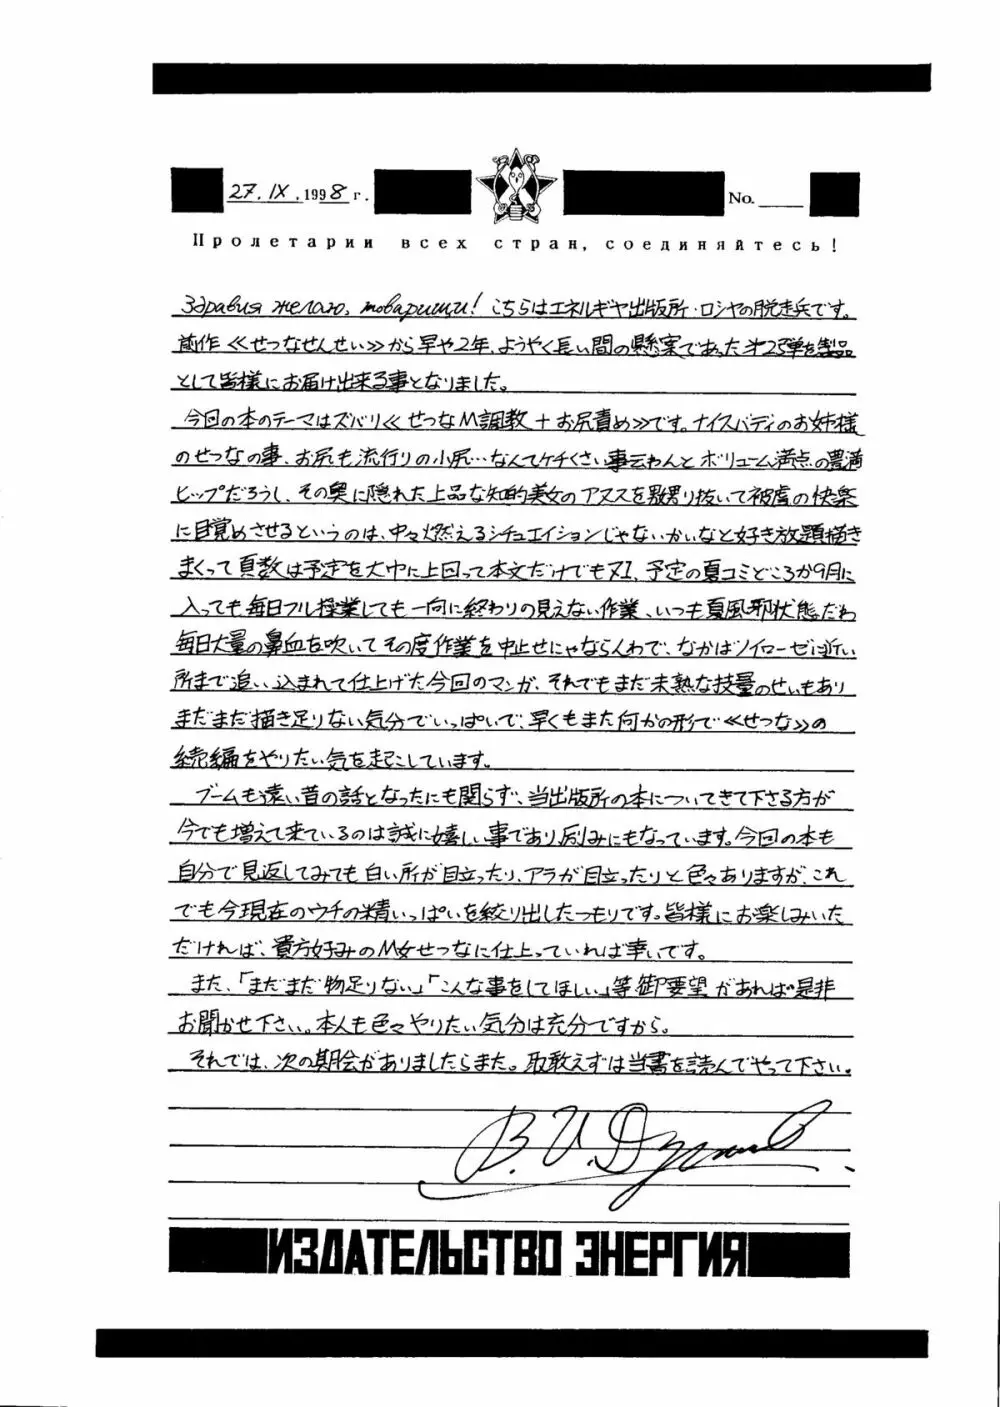 27. IX. 1998 г. No.
Пролетарии всех стран, соединяйтесь!
Здравия желаю, товарищи! こちらはエネルギヤ出版所・ロシヤの脱走兵です。
前作≪せつなせんせい≫から早や2年、ようやく長い間の懸案であった第2弾を製品
として皆様にお届け出来る事となりました。
今回の本のテーマはズバリ≪せつなM調教+お尻責め≫です。ナイスバディのお姉様
のせつなの事、お尻も流行りの小尻…なんてケチくさい事云わんとボリューム満点の豊満
ヒップだろうし、その奥に隠れた上品な知的美女のアヌスを嬲り抜いて被虐の快楽
に目覚めさせるというのは、中々燃えるシチュエイションじゃないかいなと好き放題描き
まくって頁数は予定を大巾に上回って本文だけでも、予定の夏コミどころか9月に
入っても毎日フル操業しても一向に終わりの見えない作業、いつも夏風邪状態だわ
毎日大量の鼻血を吹いてその度作業を中止せにゃならんわで、なかばノイローゼに近い
所まで追い込まれて仕上げた今回のマンガ、それでもまだ未熟な技量のせいもあり
まだまだ描き足りない気分でいっぱいで、早くもまた何かの形で≪せつな≫の
続編をやりたい気を起こしています。
ブームも遠い昔の話となったにも関らず、当出版所の本についてきて下さる方が
今でも増えて来ているのは誠に嬉しい事であり励みにもなっています。今回の本も
自分で見返してみても白い所が目立ったり、アラが目立ったりと色々ありますが、これ
でも今現在のウチの精いっぱいを絞り出したつもりです。皆様にお楽しみいた
だければ、貴方好みのM女せつなに仕上っていれば幸いです。
また、「まだまだ物足りない」「こんな事をしてほしい」等御要望があれば是非
お聞かせ下さい。本人も色々やりたい気分は充分ですから。
それでは、次の機会がありましたらまた。取敢えずは当書を読んでやって下さい。
ИЗДАТЕЛЬСТВО ЭНЕРГИЯ